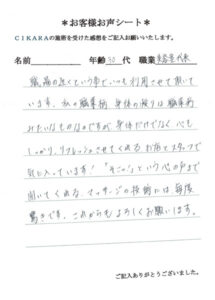 ＊お客様お声シート＊
CIKARAの施術を受けた感想をご記入お願いいたします。
名前 年齢30代 職業美容室代表
職場の近くという事でいつも利用させて頂いて
います。私の職業柄 身体の疲りは職業病
みたいなものなのですが身体だけでなく心も
しっかりリフレッシュさせてくれるお店とスタッフで
気に入っています! "そこっ"という心の声まで
聞いてくれるマッサージの技術には毎度
驚きです。これからもよろしくお願いします。
ご記入ありがとうございました。